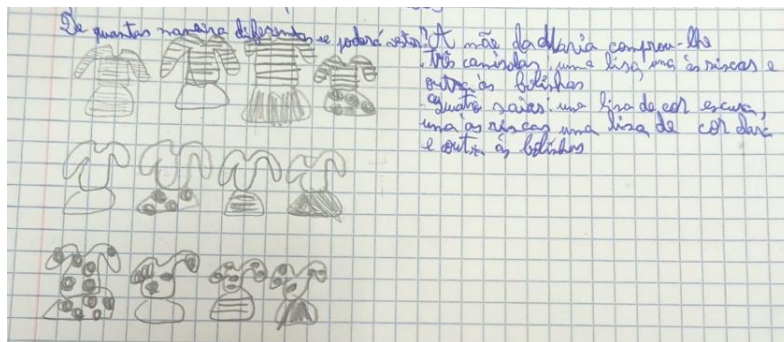 De quantas maneira diferentes se poderá vestir?
A mãe da Maria comprou-lhe
três camisolas, uma lisa, uma às riscas e
outra às bolinhas
quatro saias: uma lisa de cor escura,
uma às riscas uma lisa de cor clara
e outra às bolinhas